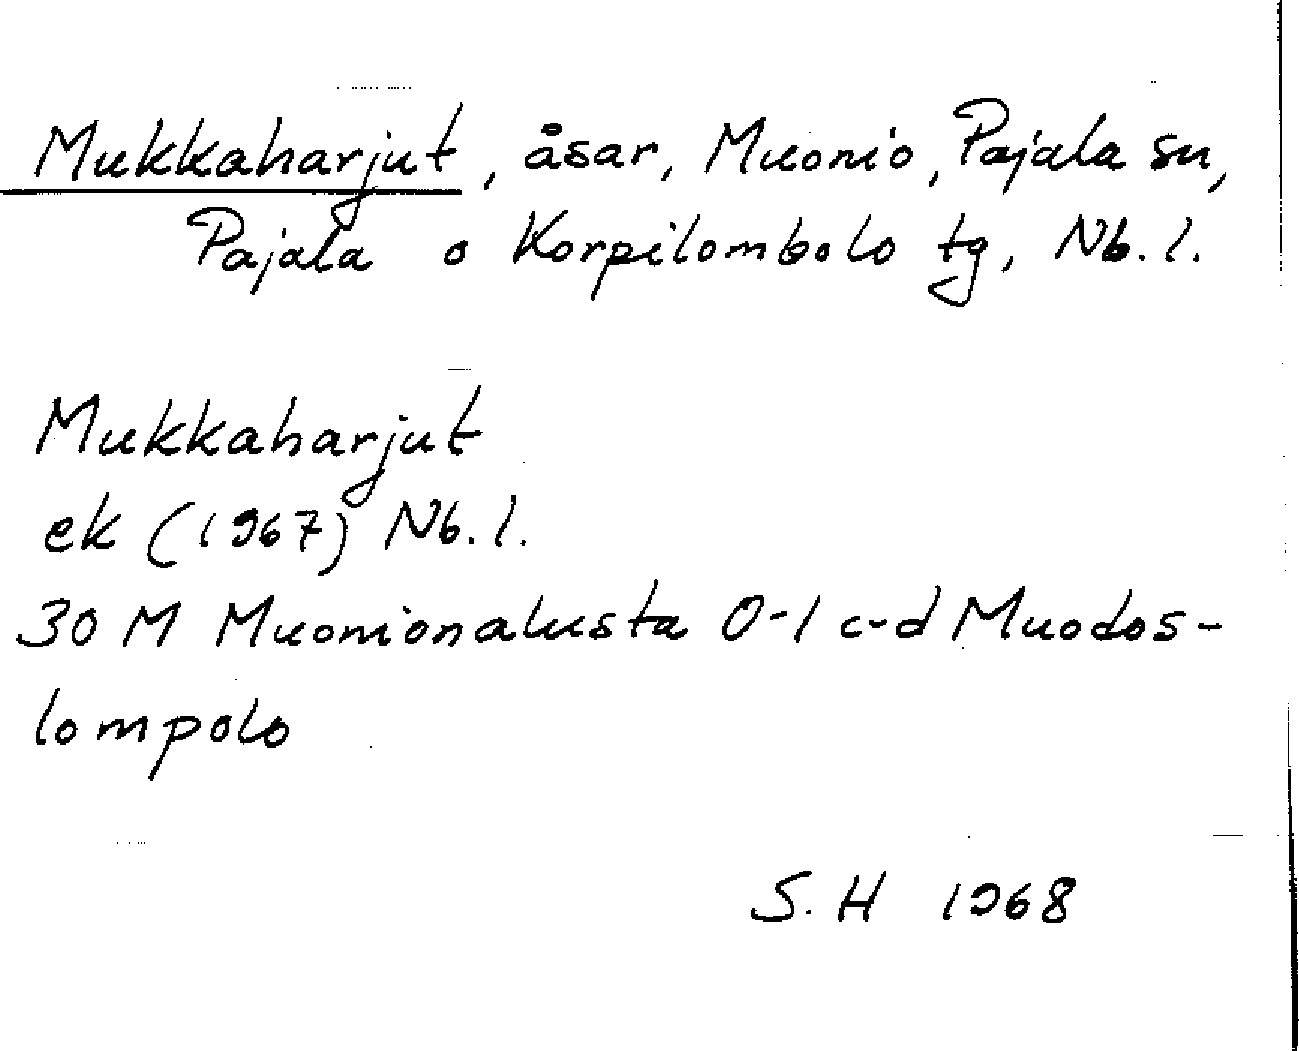 Mukkaharjut, åsar, Muonio, Pajala sn,
Pajala o Korpilombolo tg, Nb. l.
Mukkaharjut
ek (1967) Nb. l.
30 M Muonionalusta 0-1 c-d Muodos-
lompolo
S. H 1968